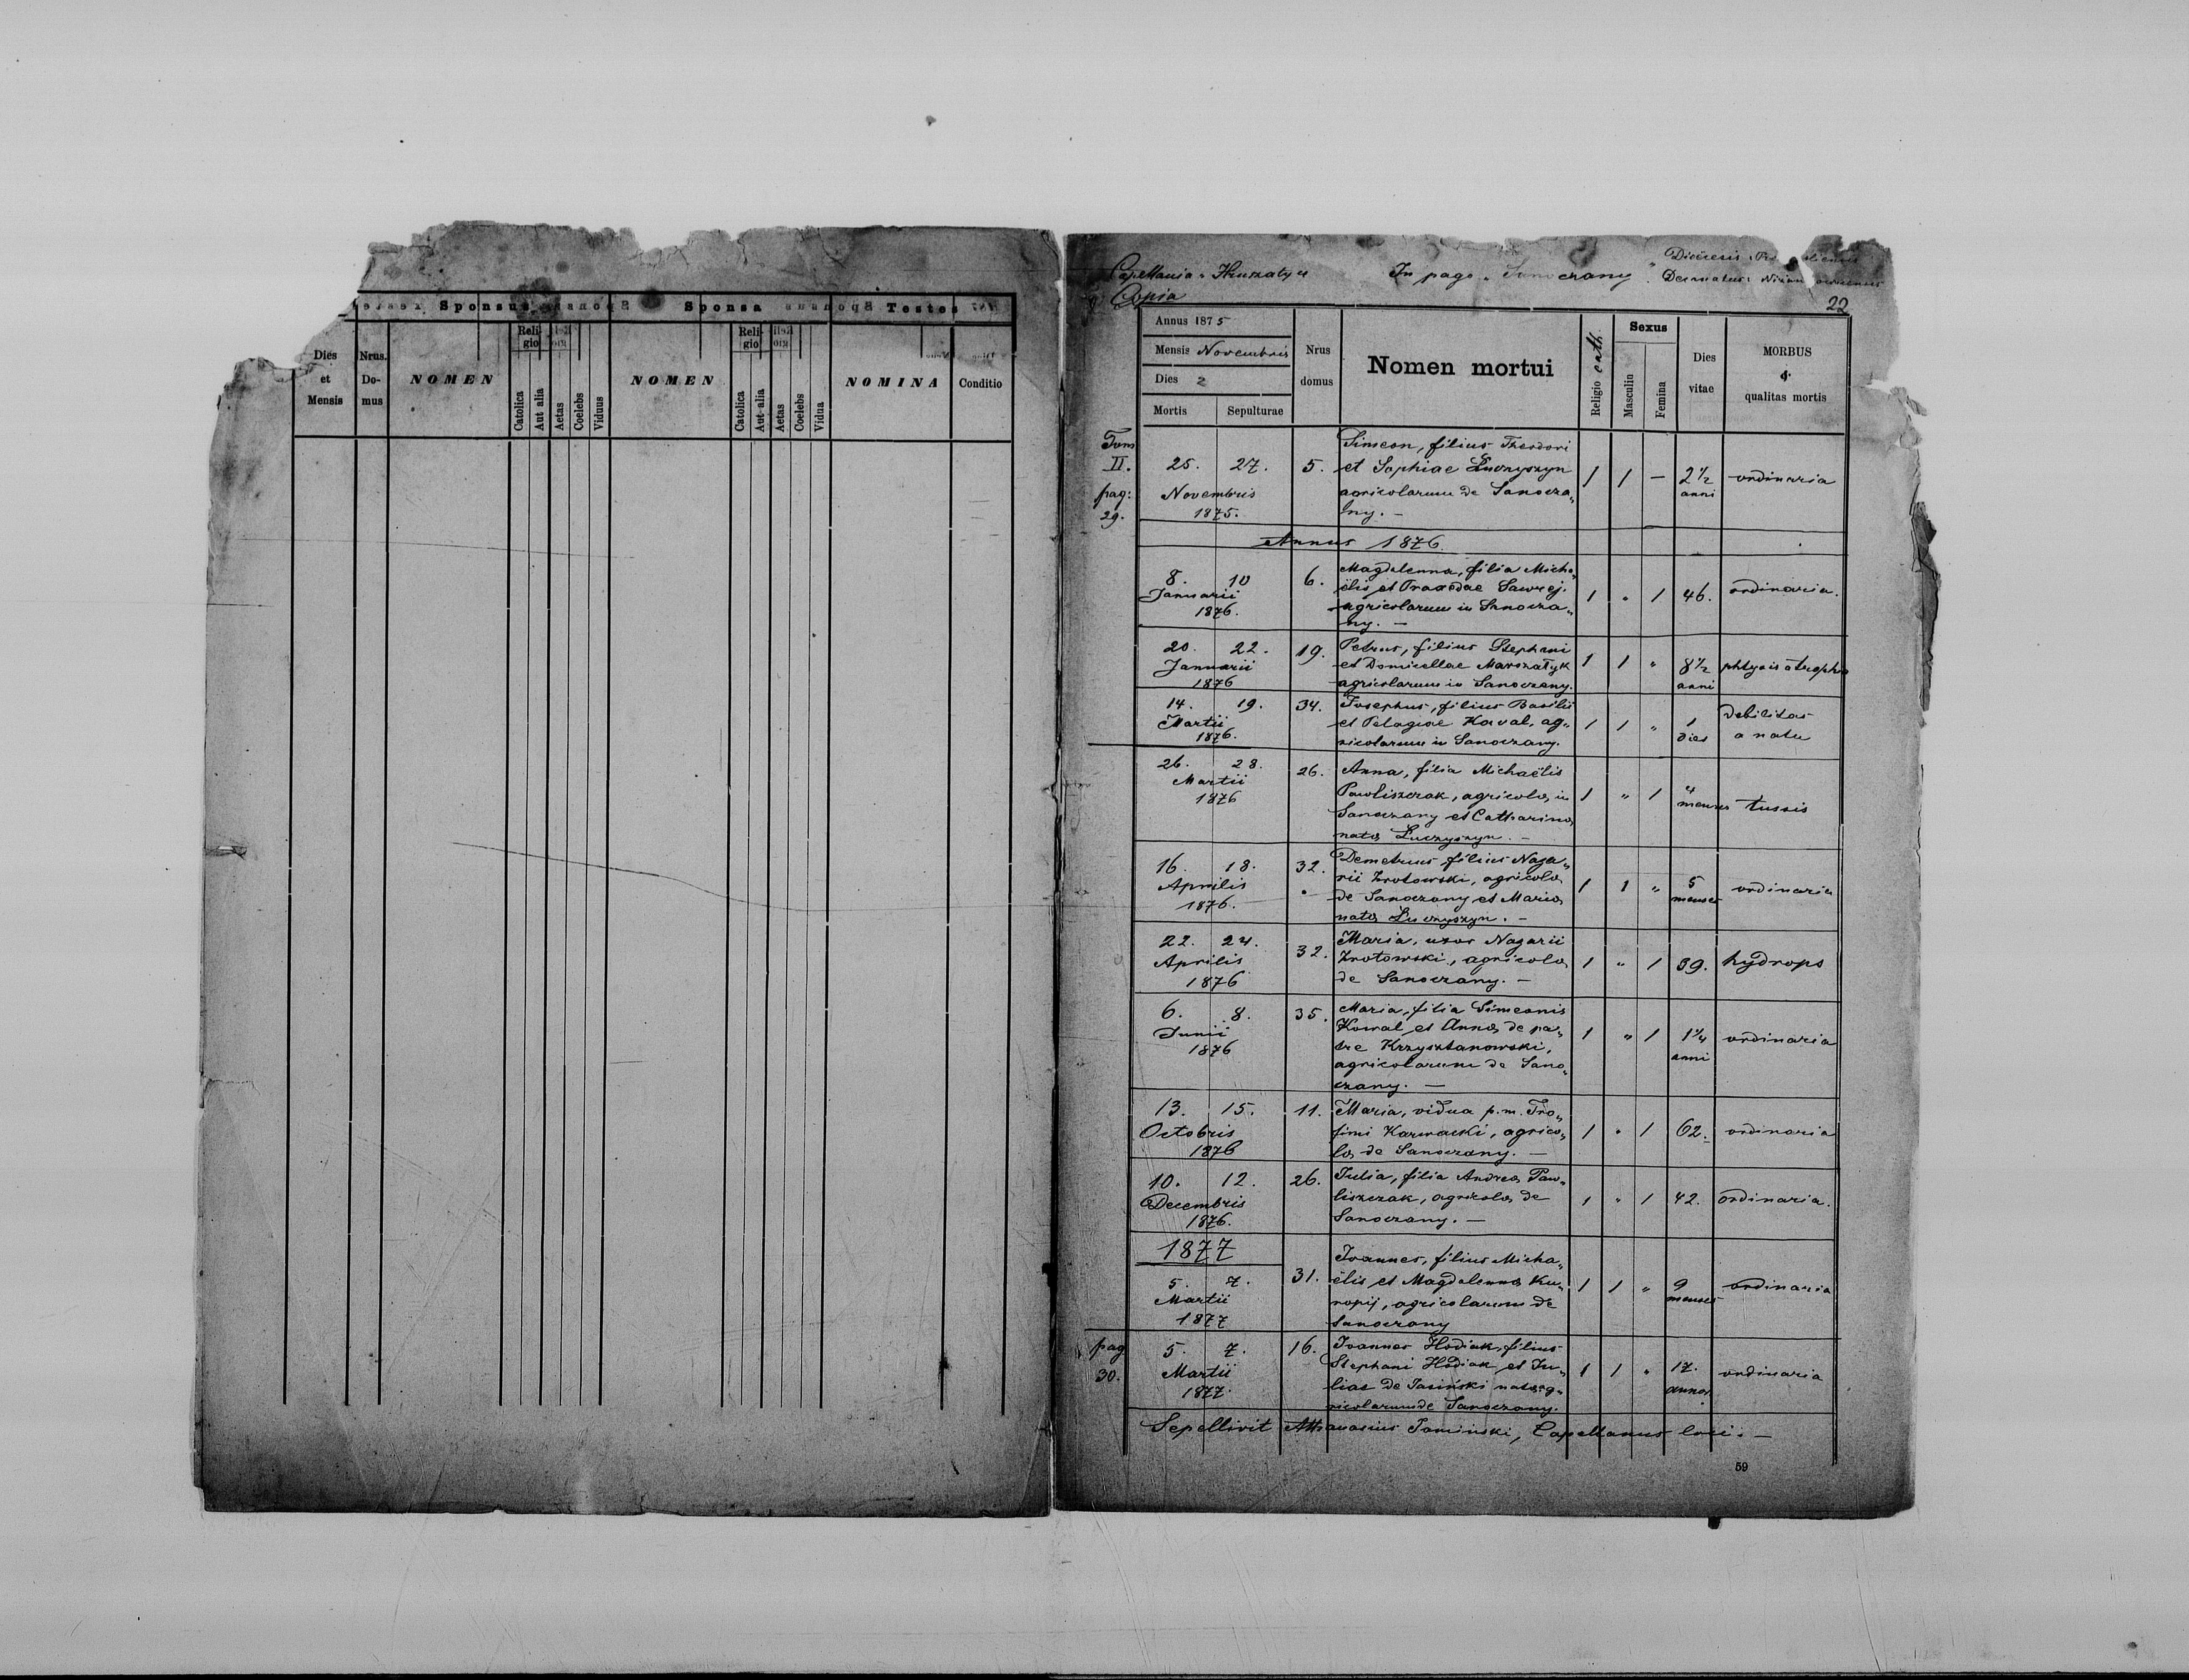 Sponsus Sponsa Testes
Dies et Mensis
Nrus. Do- mus
NOMEN
Reli- gio
Catolica
Aut alia
Aetas
Coelebs
Viduus
NOMEN
Reli- gio
Catolica
Aut alia
Aetas
Coelebs
Vidua
NOMINA
Conditio
Capellania Hruszatyce In pago Sanoczany Dioecesis
Decanatus
Copia
22
Annus 1875
Mensis Novembris
Dies 2
Mortis Sepulturae
Nrus domus
Nomen mortui
Religio cath.
Sexus
Masculin
Femina
Dies vitae
MORBUS
&
qualitas mortis
Tom
II.
pag:
29.
Simeon, filius Theodori
25. 27. 5. et Sophiae Łuczyszyn 1 1 — 2 1/2 ordinaria
Novembris agricolarum de Sanocza„ anni
1875. ny. —
Annus 1876.
8. 10 6. Magdalenna, filia Micha„
Januarii ëlis et Praxedae Sawrej. 1 „ 1 46. ordinaria.
1876. agricolarum in Sanocza„
ny. —
20. 22. 19. Petrus, filius Stephani
Januarii et Domicellae Marszałyk 1 1 „ 8 1/2
1876 agricolarum in Sanoczany. anni
14. 19. 34. Josephus, filius Basilii debilitas
Martii et Pelagiae Koval, ag„ 1 1 „ 1 a natu
1876. ricolarum in Sanoczany. dies
26. 28. 26. Anna, filia Michaëlis
Martii Pawliszczak, agricola, in 1 „ 1 4 menses tussis
1876 Sanoczany et Catharina,
nata Łuczyszyn. —
16. 18. 32. Demetrius, filius Naza„
Aprilis rii Zrotowski, agricola, 1 1 „ 5 ordinaria
1876. de Sanoczany et Maria, menses
nata Łuczyszyn. —
22. 24. 32. Maria, uxor Nazarii
Aprilis Zrotowski, agricola, 1 „ 1 39. hydrops
1876 de Sanoczany. —
6. 8. 35. Maria, filia Simeonis
Junii Kowal et Anna, de pa„ 1 „ 1 1 1/4 ordinaria
1876 tre Krzysztanowski, anni
agricolarum de Sano„
czany. —
13. 15. 11. Maria, vidua p.m. Tro„
Octobris fimi Karwacki, agrico„ 1 „ 1 62. ordinaria
1876 la, de Sanoczany. —
10. 12. 26. Julia, filia Andrea Paw„
Decembris liszczak, agricola, de 1 „ 1 42. ordinaria.
1876. Sanoczany. —
1877
Joannes, filius Micha„
5. 7. 31. ëlis et Magdalenna Ku„ 1 1 „ 9 ordinaria
Martii ropij, agricolarum de menses
1877 Sanoczany
pag
30.
5. 7. 16. Joannes Hodiak, filius
Martii Stephani Hodiak et Ju„ 1 1 „ 17. ordinaria
1877. lias de Jasiński nata, ag„ annos
ricolarum de Sanoczany.
Sepellivit Athanasius Jamiński, Capellanus loci. —
59